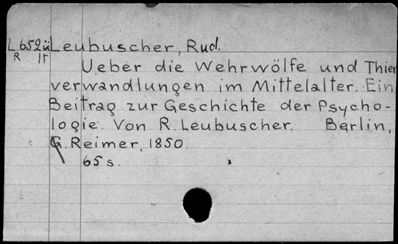 L652ü Leubuscher, Rud.
R It
Ueber die Wehrwölfe und Thier
verwandlungen im Mittelalter. Ein
Beitrag zur Geschichte der Psycho-
logie. Von R. Leubuscher. Berlin,
G. Reimer, 1850.
65 s.